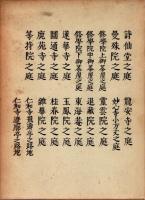 詩仙堂之庭
曼殊院之庭
修學院上御茶屋之庭
修學院中御茶屋之庭
修學院下御茶屋之庭
蓮華寺之庭
圓通寺之庭
鹿苑寺之庭
等持院之庭
龍安寺之庭
妙心寺小方丈之庭
靈雲院之庭
退藏院之庭
東海庵之庭
玉鳳院之庭
桂春院之庭
雜華院之庭
仁和寺飛濤亭之路地
仁和寺遼廓亭之路地